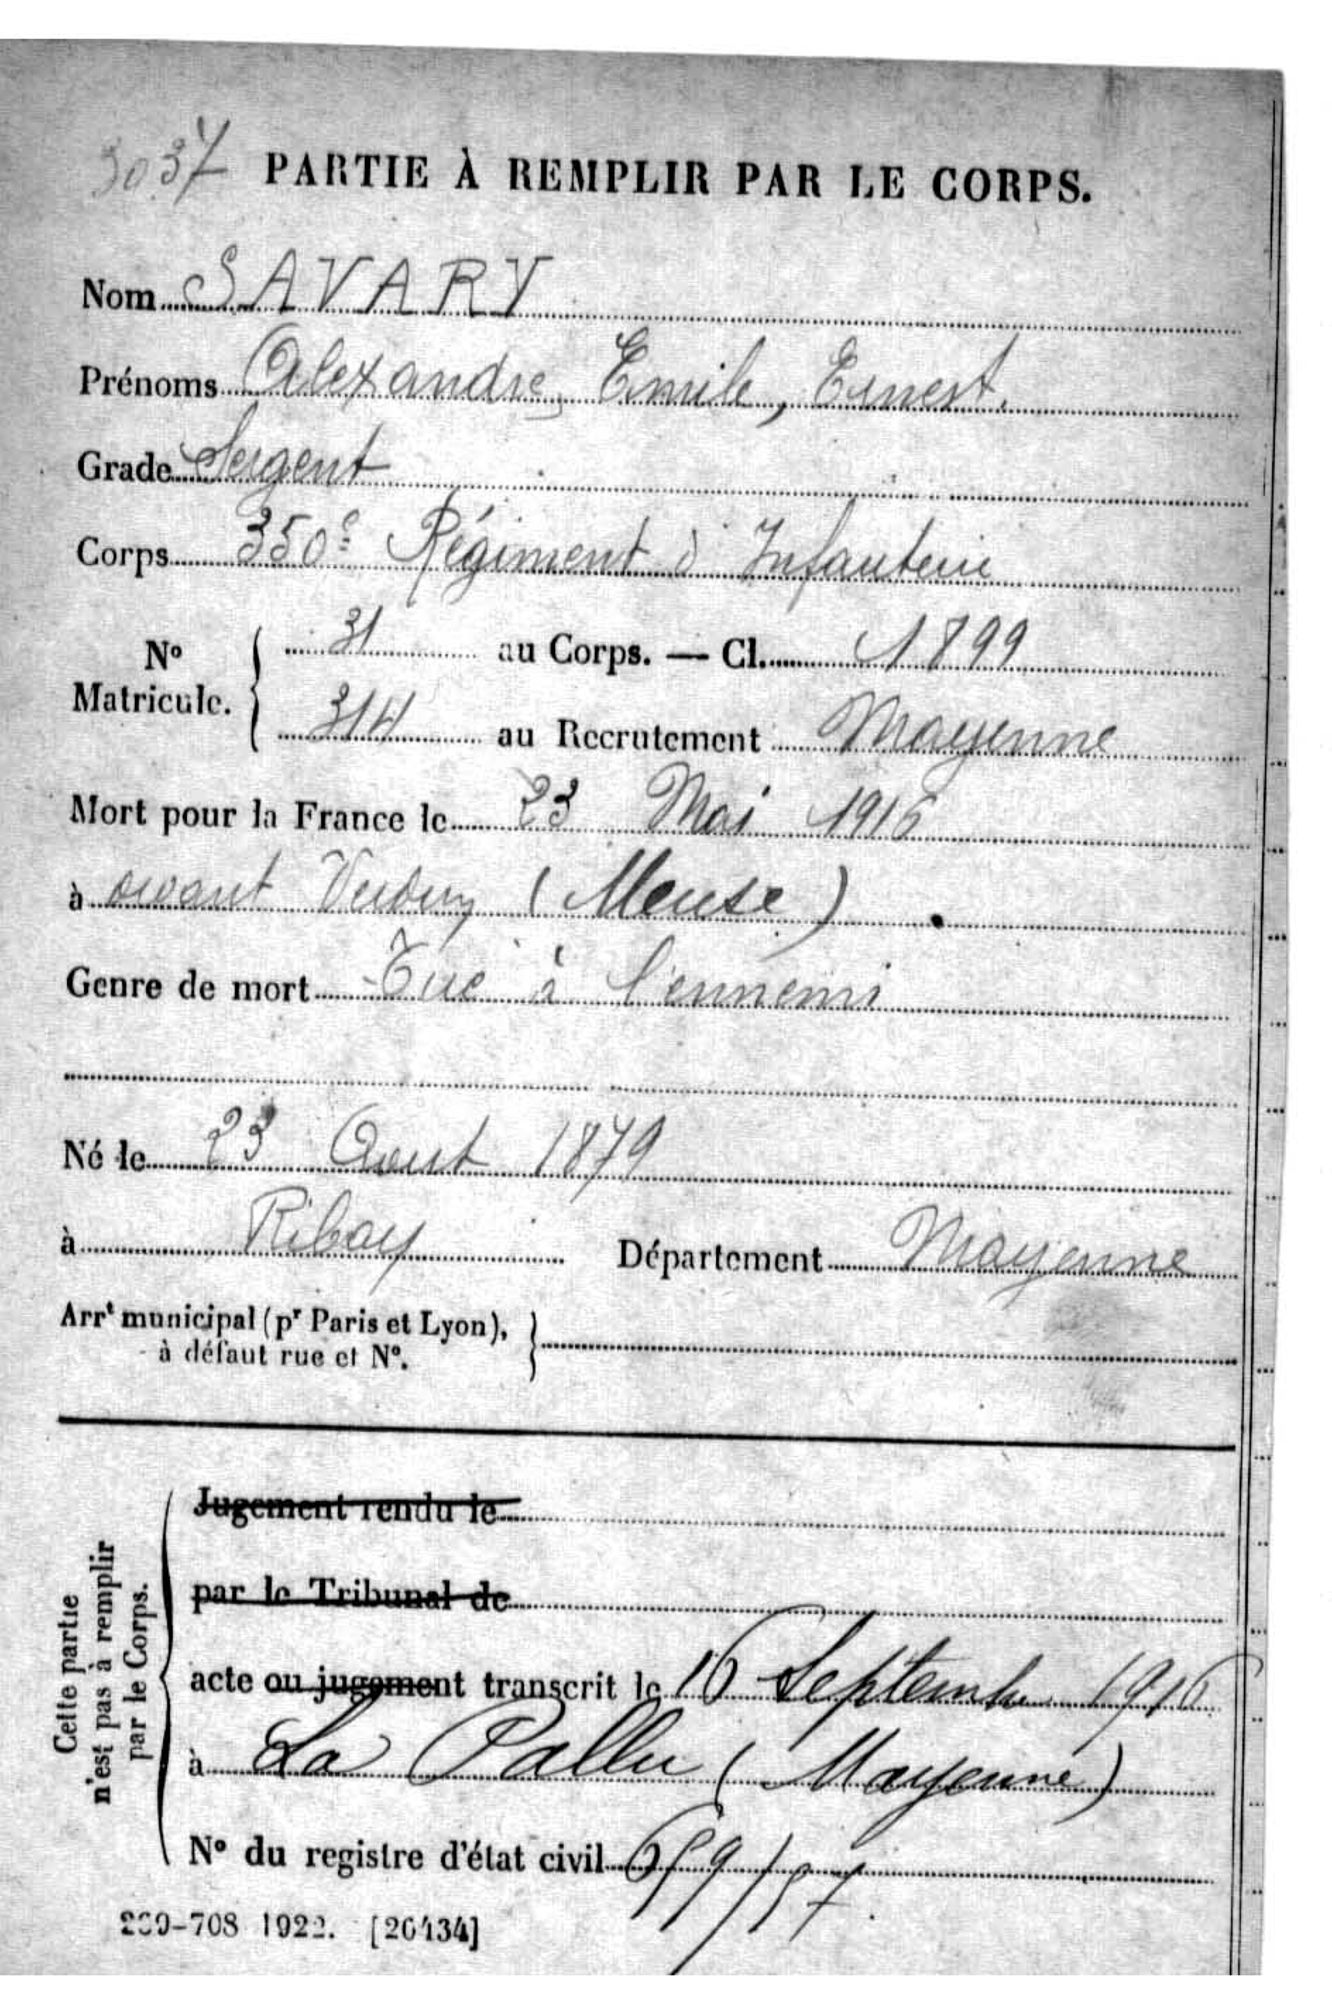 3037 PARTIE À REMPLIR PAR LE CORPS.
Nom SAVARY
Prénoms Alexandre, Emile, Ernest.
Grade Sergent
Corps 350e Régiment d'Infanterie
No Matricule. { 31 au Corps. — Cl. 1899
314 au Recrutement Mayenne
Mort pour la France le 23 Mai 1916
à devant Verdun (Meuse)
Genre de mort Tué à l'ennemi
Né le 23 Aout 1879
à Ribay Département Mayenne
Arrt municipal (pr Paris et Lyon), }
à défaut rue et No.
Cette partie
n'est pas à remplir
par le Corps.
Jugement rendu le
par le Tribunal de
acte ou jugement transcrit le 16 Septembre 1916
à La Pallu (Mayenne)
No du registre d'état civil 659/57.
269-708 1922. [26434]